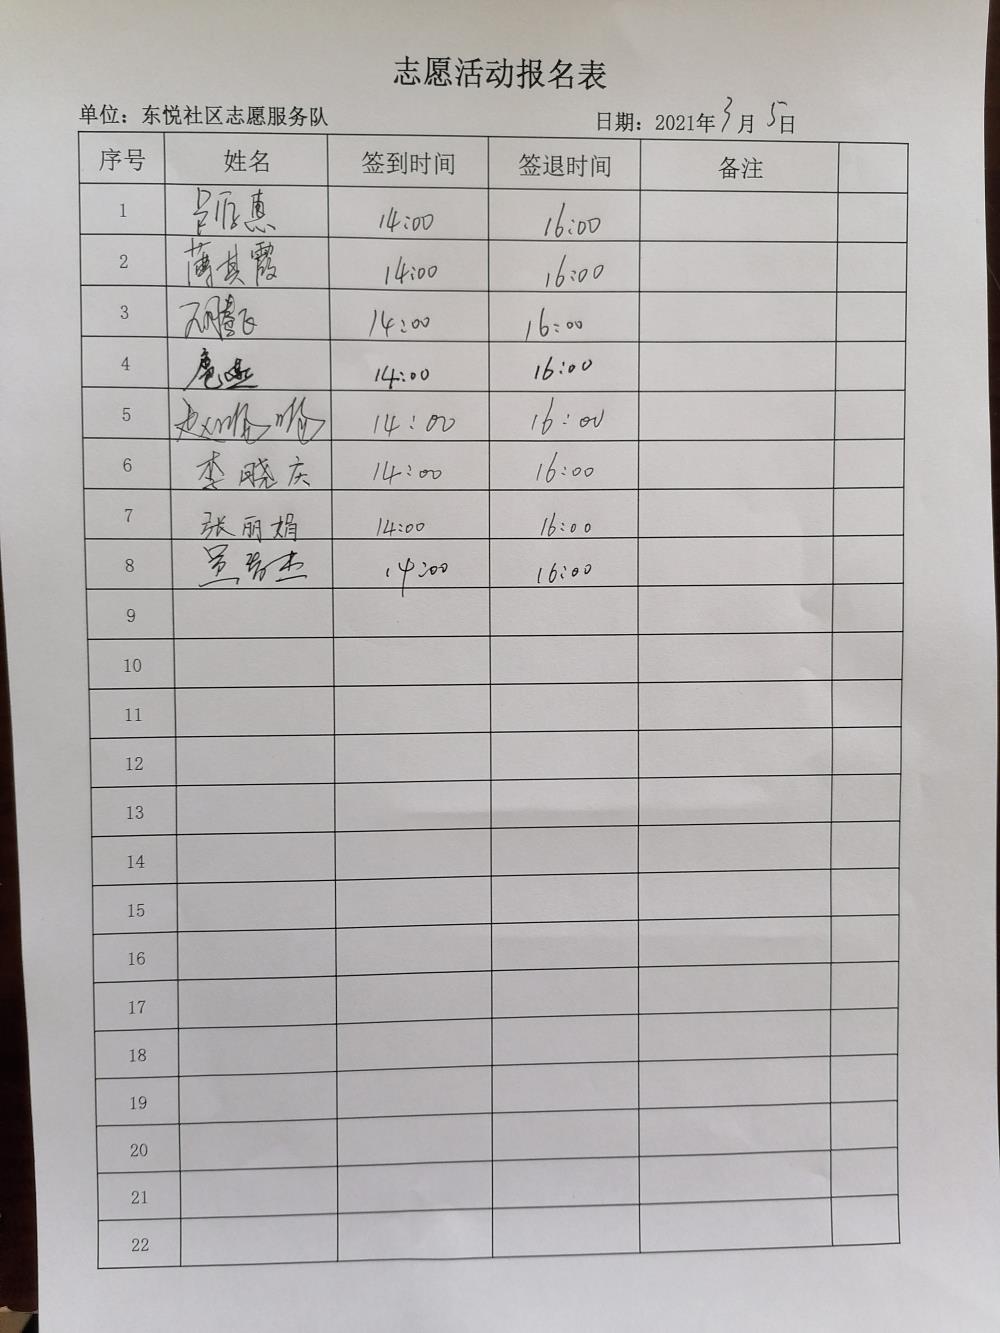 志愿活动报名表
单位：东悦社区志愿服务队 日期：2021年3月5日
序号 姓名 签到时间 签退时间 备注
1 14:00 16:00
2 薄其霞 14:00 16:00
3 14:00 16:00
4 14:00 16:00
5 赵 14:00 16:00
6 李晓庆 14:00 16:00
7 张丽娟 14:00 16:00
8 14:00 16:00
9
10
11
12
13
14
15
16
17
18
19
20
21
22